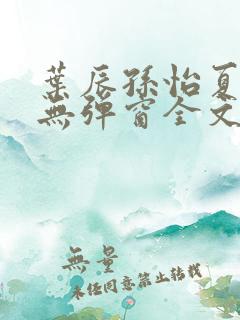 葉辰孫怡夏
無彈窗全文
無量
未經同意禁止轉載